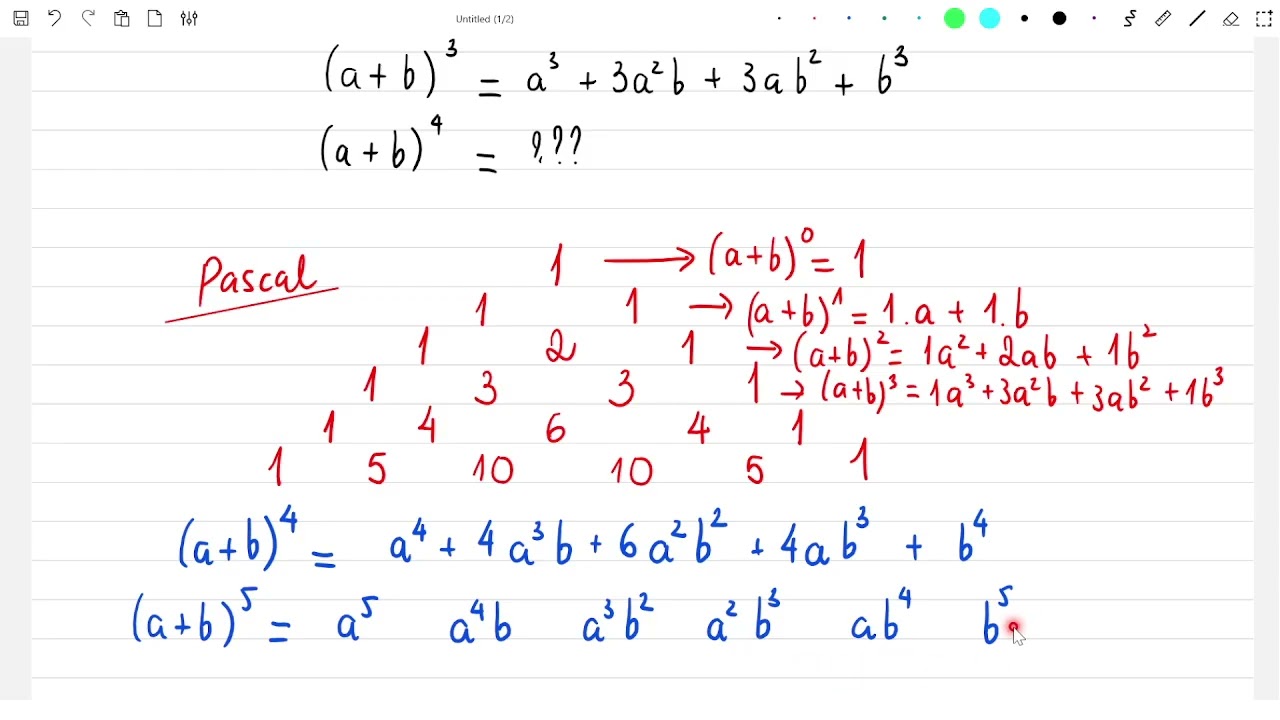 Untitled (1/2)
(a+b)³ = a³ + 3a²b + 3ab² + b³
(a+b)⁴ = ???
Pascal
1 → (a+b)⁰ = 1
1 1 → (a+b)¹ = 1.a + 1.b
1 2 1 → (a+b)² = 1a² + 2ab + 1b²
1 3 3 1 → (a+b)³ = 1a³ + 3a²b + 3ab² + 1b³
1 4 6 4 1
1 5 10 10 5 1
(a+b)⁴ = a⁴ + 4a³b + 6a²b² + 4ab³ + b⁴
(a+b)⁵ = a⁵ a⁴b a³b² a²b³ ab⁴ b⁵